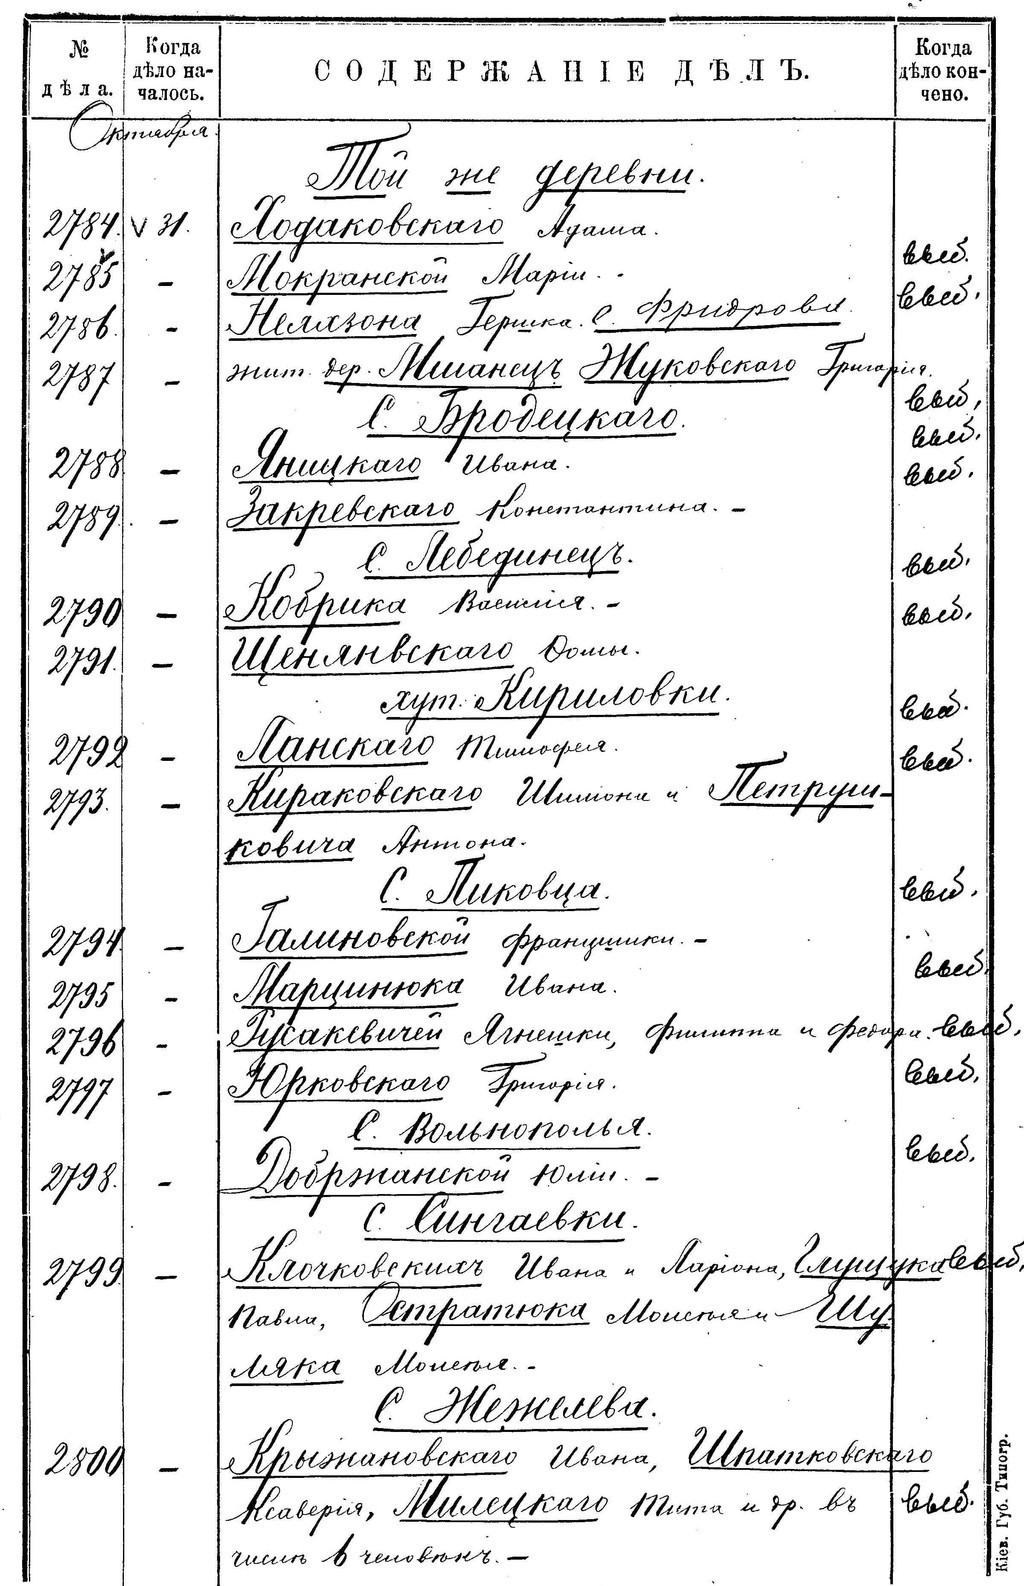 № дѣла. Когда дѣло началось. СОДЕРЖАНІЕ ДѢЛЪ. Когда дѣло кончено.
Октября
Той же деревни.
2784. v 31. Ходаковскаго Адама. выб.
2785 - Мокранской Маріи. - выб.
2786. - Нелязона Гершка. с. Фридрова
2787 - жит. дер. Мшанецъ Жуковскаго Григорія. выб.
С. Бродецкаго. выб.
2788 - Яницкаго Ивана. выб.
2789. - Закревскаго Константина. -
С. Лебединецъ. выб.
2790 - Кобрика Василія. - выб.
2791. - Щенянвскаго Фомы.
хут. Кириловки. выб.
2792 - Ланскаго Тимофея. выб.
2793. - Кираковскаго Шимона и Петруш-
ковича Антона.
С. Пиковца. выб.
2794 - Галиновской Францишки. -
2795 - Марцинюка Ивана. выб.
2796 - Русакевичей Ягнешки, Филиппа и Федора. выб.
2797 - Юрковскаго Григорія. выб.
С. Вольнополья.
2798. - Добржанской Юліи. - выб.
С. Сингаевки.
2799 - Клочковскихъ Ивана и Ларіона, Глущука выб.
Павла, Остратюка Моисея и Шу
ляка Моисея. -
С. Жежелева.
2800 - Крыжановскаго Ивана, Шпатковскаго
Ксаверія, Милецкаго Тита и др. въ выб.
числѣ 6 человѣкъ. -
Кіев. Губ. Типогр.